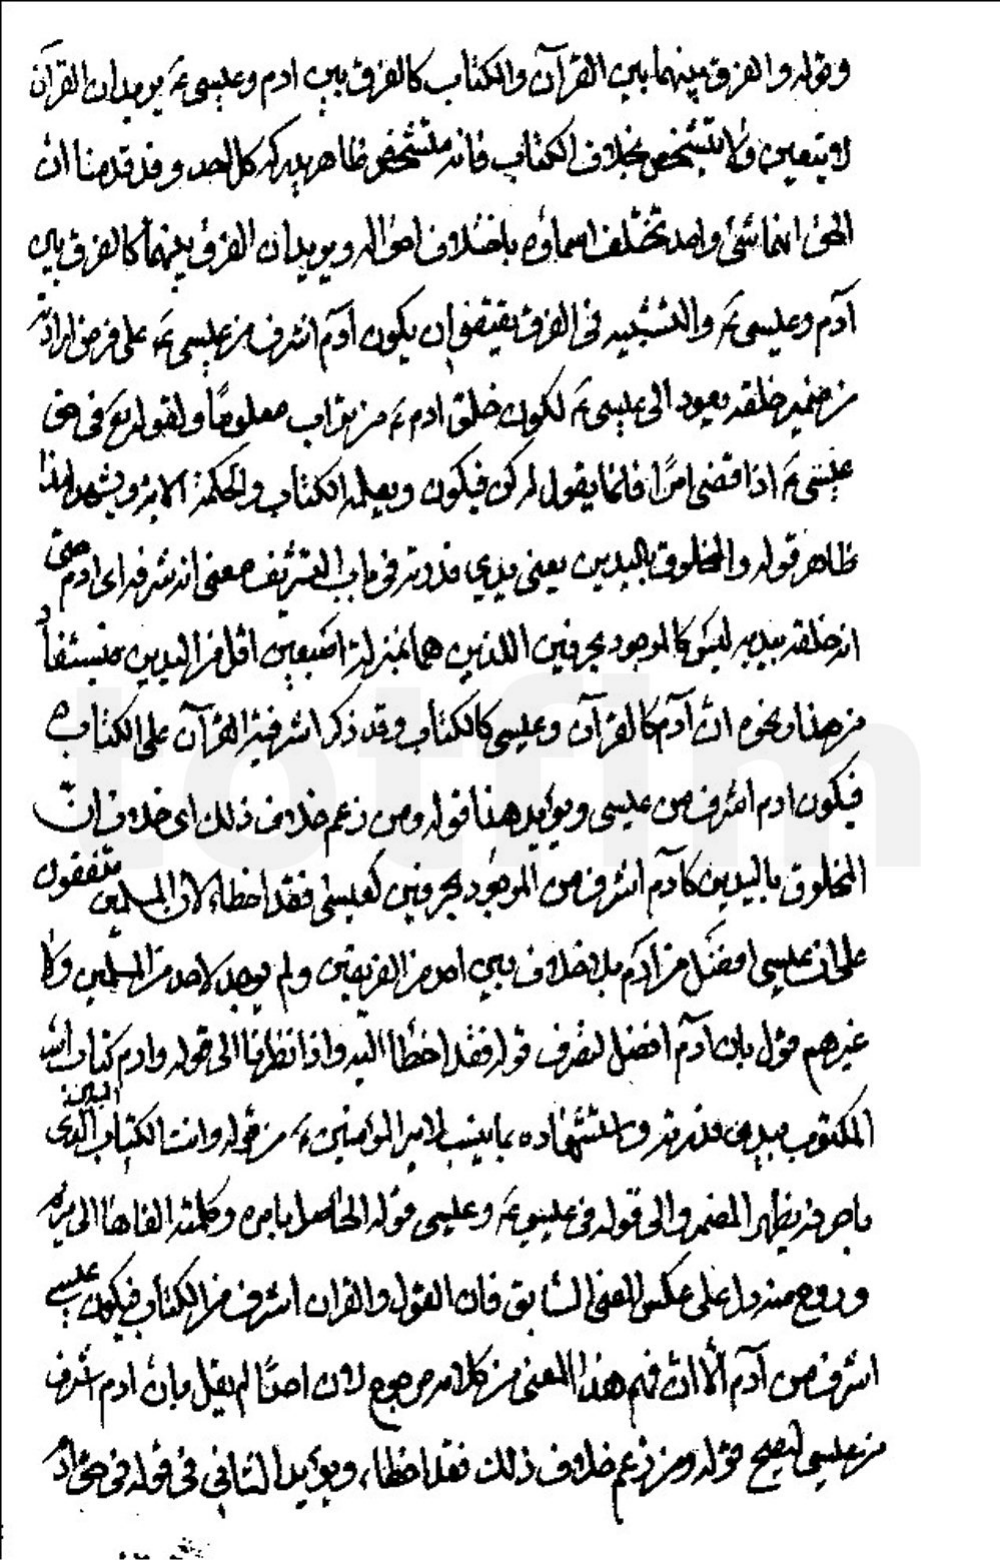 وقوله والفرق بينهما بين القرآن والكتاب كالفرق بين ادم وعيسى ع يريد ان القرآن
لا يتعين ولا يتشخص بخلاف الكتاب فانه متشخص ظاهر يدركه كل احد وقد قدمنا ان
الحق انما شئ واحد تختلف اسماؤه باختلاف احواله ويريد ان الفرق بينهما كالفرق بين
آدم وعيسى ع والتشبيه فى الفرق يقتضى ان يكون آدم اشرف من عيسى ع على فرض ارادته
من ضمير خلقه يعود الى عيسى ع لكون خلق ادم ع من تراب معلومًا ولقوله تع فى حق
عيسى ع اذا قضى امرًا فانما يقول له كن فيكون ويعلمه الكتاب والحكمة الاية ويشهد لهذا
ظاهر قوله والمخلوق باليدين يعنى بيدي قدرته فى باب التشريف معنى انه شرفه اى ادم حتى
انه خلقه بيديه ليس كالموجود بحرفين اللذين هما بمنزلة اصبعين اقل من اليدين فيستفاد
من هذا ونحوه ان آدم كالقرآن وعيسى كالكتاب وقد ذكر اشرفية القرآن على الكتاب
فيكون ادم اشرف من عيسى ويؤيد هذا قوله ومن زعم خلاف ذلك اى خلاف انّ
المخلوق باليدين كآدم اشرف من الموجود بحرفين كعيسى فقد اخطاء لان المسلمين متفقون
على ان عيسى افضل من آدم بلا خلاف بين احد من الفريقين ولم يوجد لاحد من المسلمين ولا
غيرهم قول بان آدم افضل ليصرف قوله فقد اخطأ اليه واذا نظرنا الى قوله وادم كتاب الله
المكتوب بيدى قدرته واستشهاده بما ينسب لامير المؤمنين ع من قوله وانت الكتاب المبين الذى
باحرفه يظهر المضمر والى قوله فى عيسى ع وعيسى قوله الحاصل بامره وكلمته القاها الى مريم
وروح منه دل على عكس المعنى السابق فان القول والقران اشرف من الكتاب فيكون عيسى
اشرف من آدم الّا ان فهم هذا المعنى من كلامه مرجوح لان احدًا لم يقل بان ادم اشرف
من عيسى ليصح قوله ومن زعم خلاف ذلك فقد اخطاء ويؤيد الثانى فى قوله فى حق آدم
totfim